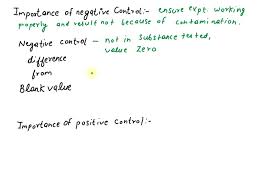 Importance of negative Control:- ensure expt. working
properly and result not because of contamination.
Negative control - not in substance tested,
value Zero
difference
from
Blank value
Importance of positive control:-